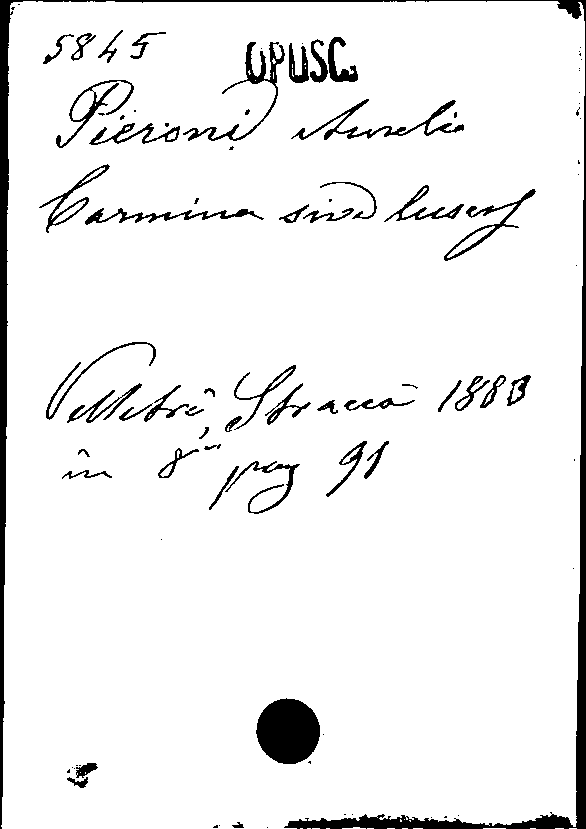 5845 OPUSC.
Pieroni Aurelio
Carmina sive lusus
Velletri, Stracca 1883
in 8° pag 91